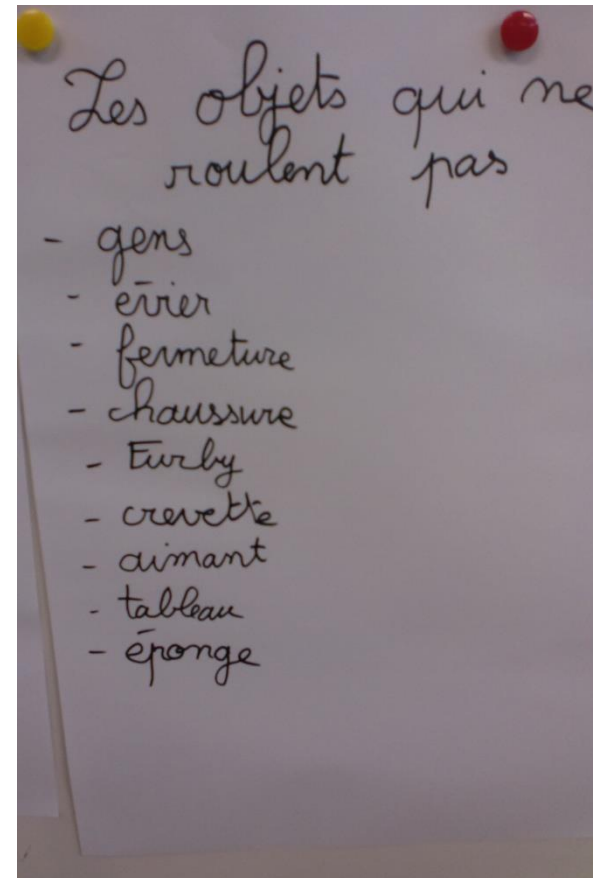 Les objets qui ne
roulent pas
- gens
- évier
- fermeture
- chaussure
- Furby
- crevette
- aimant
- tableau
- éponge